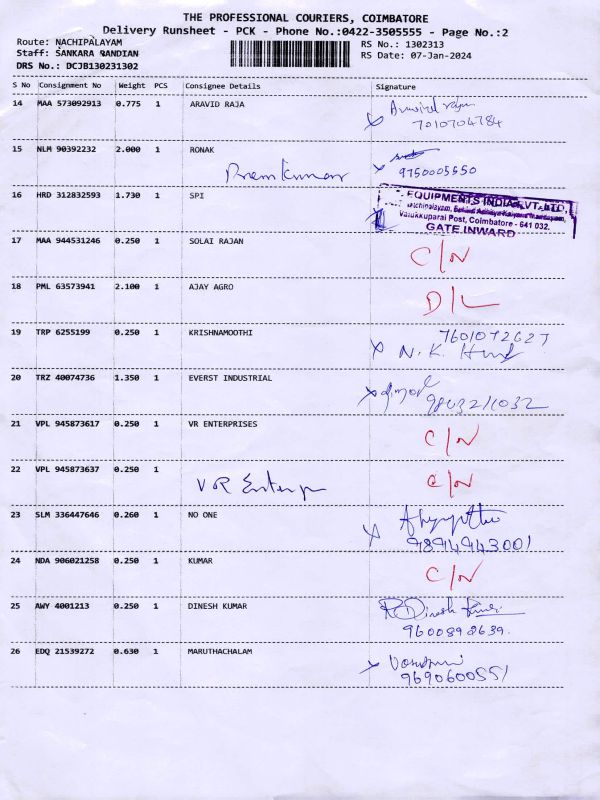 THE PROFESSIONAL COURIERS, COIMBATORE
Delivery Runsheet - PCK - Phone No.:0422-3505555 - Page No.:2
Route: NACHIPALAYAM
Staff: SANKARA BANDIAN
DRS No.: DCJB130231302
RS No.: 1302313
RS Date: 07-Jan-2024
S No Consignment No Weight PCS Consignee Details Signature
14 MAA 573092913 0.775 1 ARAVID RAJA
7010704784
15 NLM 90392232 2.000 1 RONAK
Premkumar 9750005550
16 HRD 312832593 1.730 1 SPI
EQUIPMENTS INDIA PVT. LTD.
Valukkuparai Post, Coimbatore - 641 032.
GATE INWARD
17 MAA 944531246 0.250 1 SOLAI RAJAN C/N
18 PML 63573941 2.100 1 AJAY AGRO D/L
19 TRP 6255199 0.250 1 KRISHNAMOOTHI 7601072627
N.K.
20 TRZ 40074736 1.350 1 EVERST INDUSTRIAL
21 VPL 945873617 0.250 1 VR ENTERPRISES C/N
22 VPL 945873637 0.250 1 C/N
VR Enterp
23 SLM 336447646 0.260 1 NO ONE
9894943001
24 NDA 906021258 0.250 1 KUMAR C/N
25 AWY 4001213 0.250 1 DINESH KUMAR R Dinesh Kumar
9600892639.
26 EDQ 21539272 0.630 1 MARUTHACHALAM
9690600551